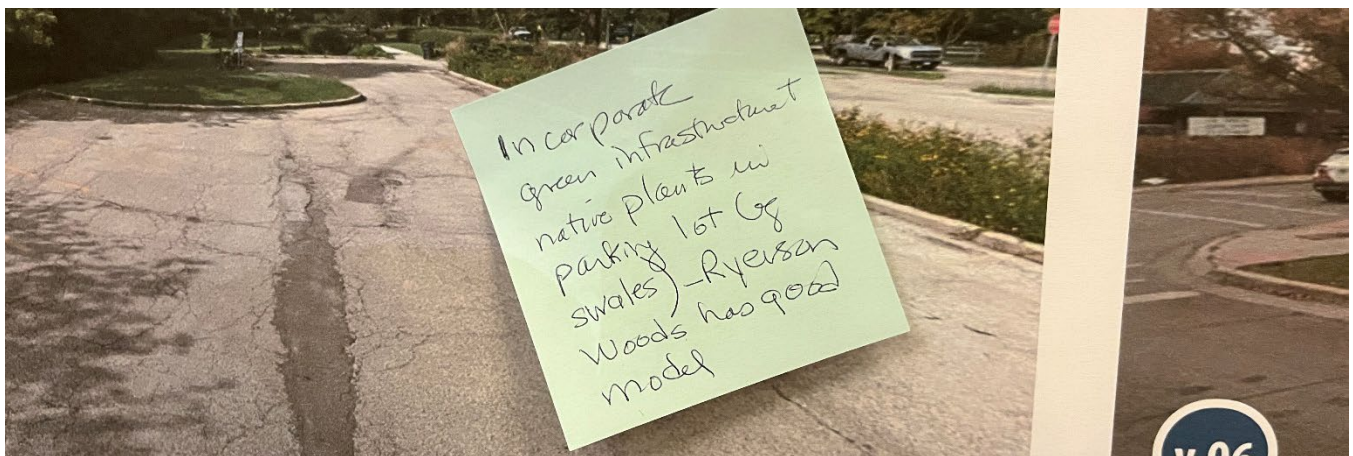 Incorporate
green infrastructure +
native plants in
parking lot (eg
swales) - Ryerson
Woods has good
model
v.06